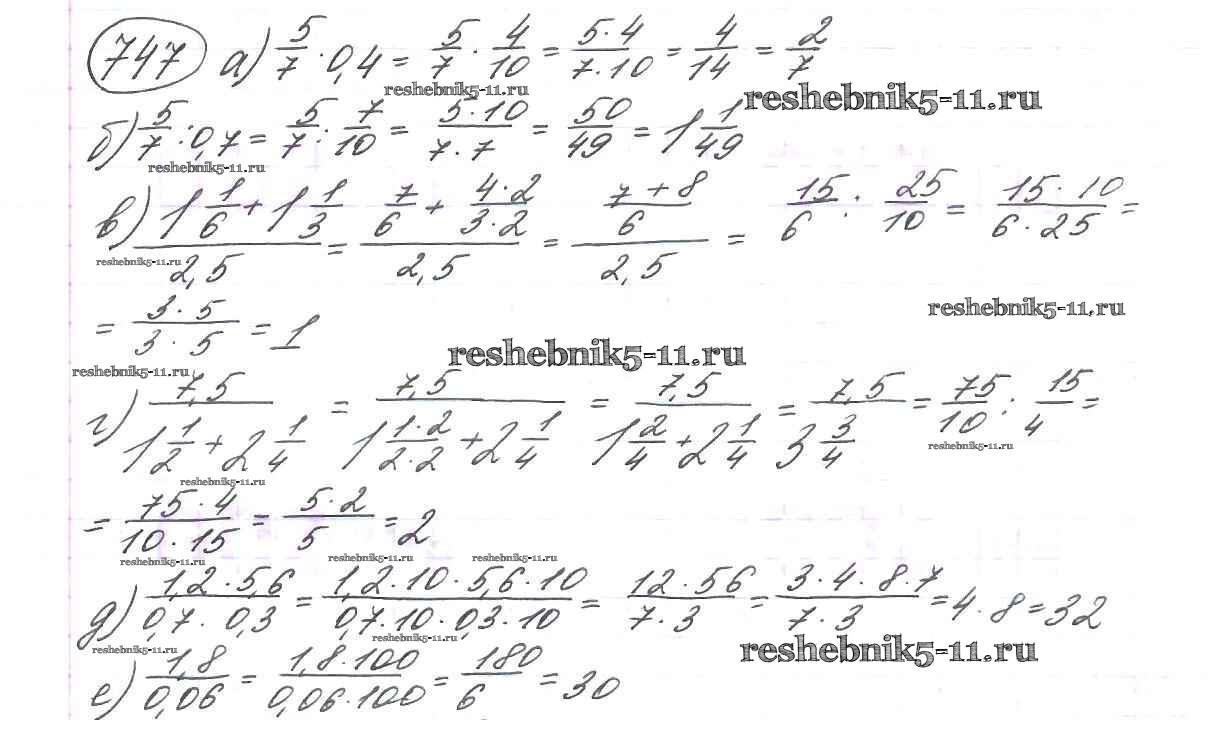 747 а) 5/7 · 0,4 = 5/7 · 4/10 = (5·4)/(7·10) = 4/14 = 2/7
reshebnik5-11.ru reshebnik5-11.ru
б) 5/7 : 0,7 = 5/7 : 7/10 = (5·10)/(7·7) = 50/49 = 1 1/49
reshebnik5-11.ru
в) (1 1/6 + 1 1/3)/2,5 = (7/6 + (4·2)/(3·2))/2,5 = ((7+8)/6)/2,5 = 15/6 : 25/10 = (15·10)/(6·25) =
reshebnik5-11.ru
= (3·5)/(3·5) = 1
reshebnik5-11.ru
reshebnik5-11.ru
reshebnik5-11.ru
г) 7,5/(1 1/2 + 2 1/4) = 7,5/(1 (1·2)/(2·2) + 2 1/4) = 7,5/(1 2/4 + 2 1/4) = 7,5/(3 3/4) = 75/10 : 15/4 =
reshebnik5-11.ru
reshebnik5-11.ru
= (75·4)/(10·15) = (5·2)/5 = 2
reshebnik5-11.ru reshebnik5-11.ru reshebnik5-11.ru
д) (1,2·5,6)/(0,7·0,3) = (1,2·10·5,6·10)/(0,7·10·0,3·10) = (12·56)/(7·3) = (3·4·8·7)/(7·3) = 4·8 = 32
reshebnik5-11.ru
reshebnik5-11.ru reshebnik5-11.ru
е) 1,8/0,06 = (1,8·100)/(0,06·100) = 180/6 = 30